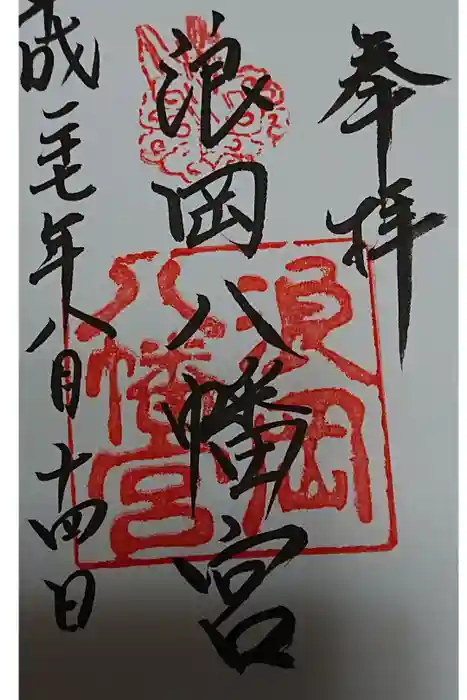 奉拝
浪岡八幡宮
浪岡
八幡宮
成二十七年八月十四日